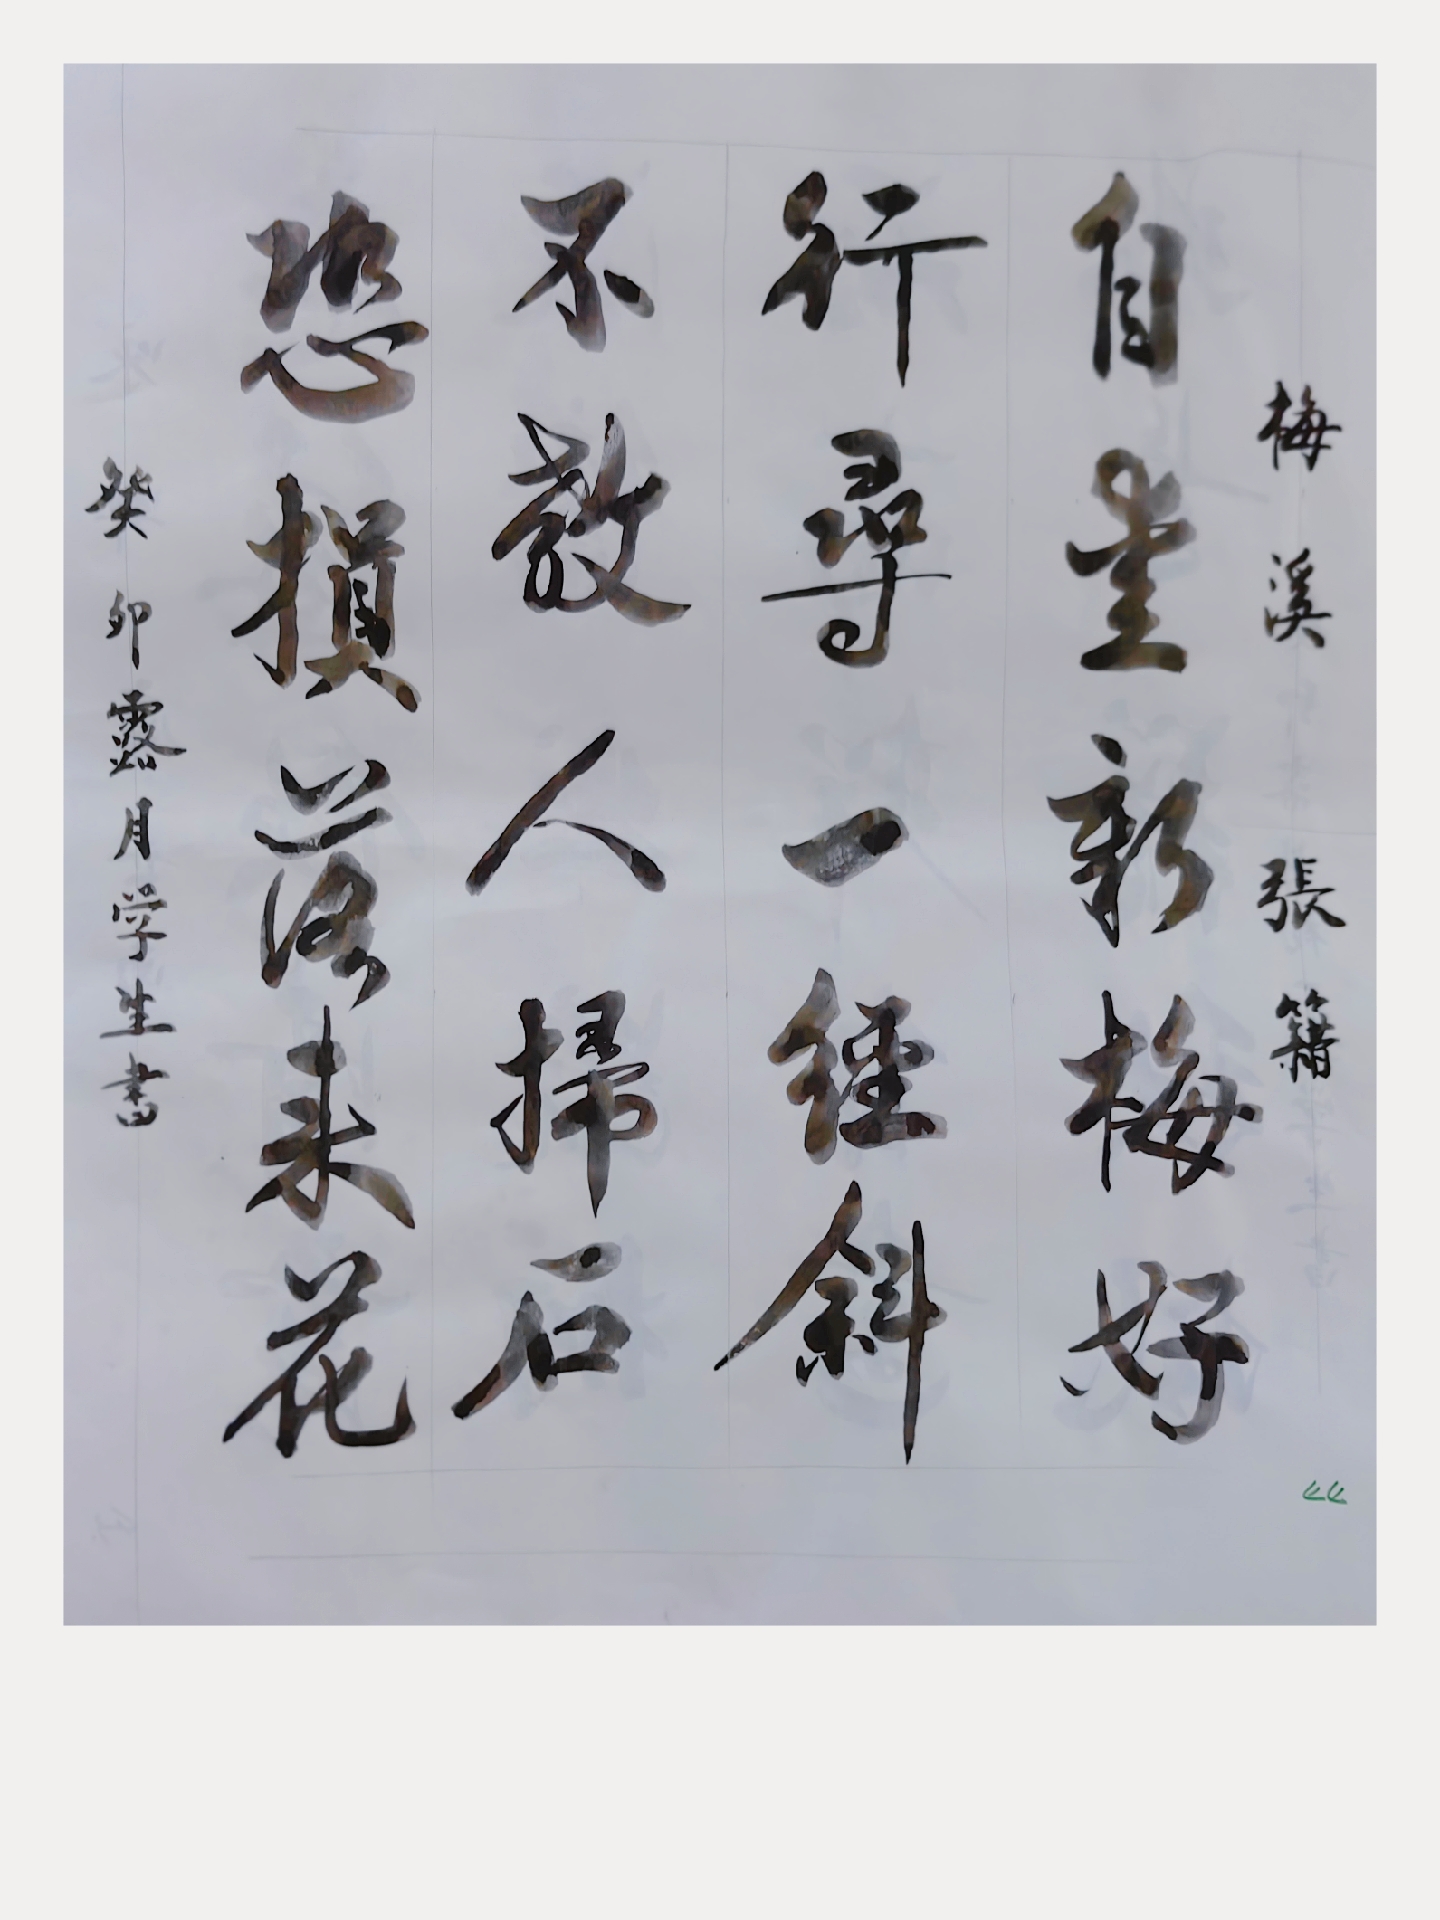 梅溪 張籍
自新梅好
行尋一徑斜
不教人掃石
恐損落来花
癸卯露月学生書